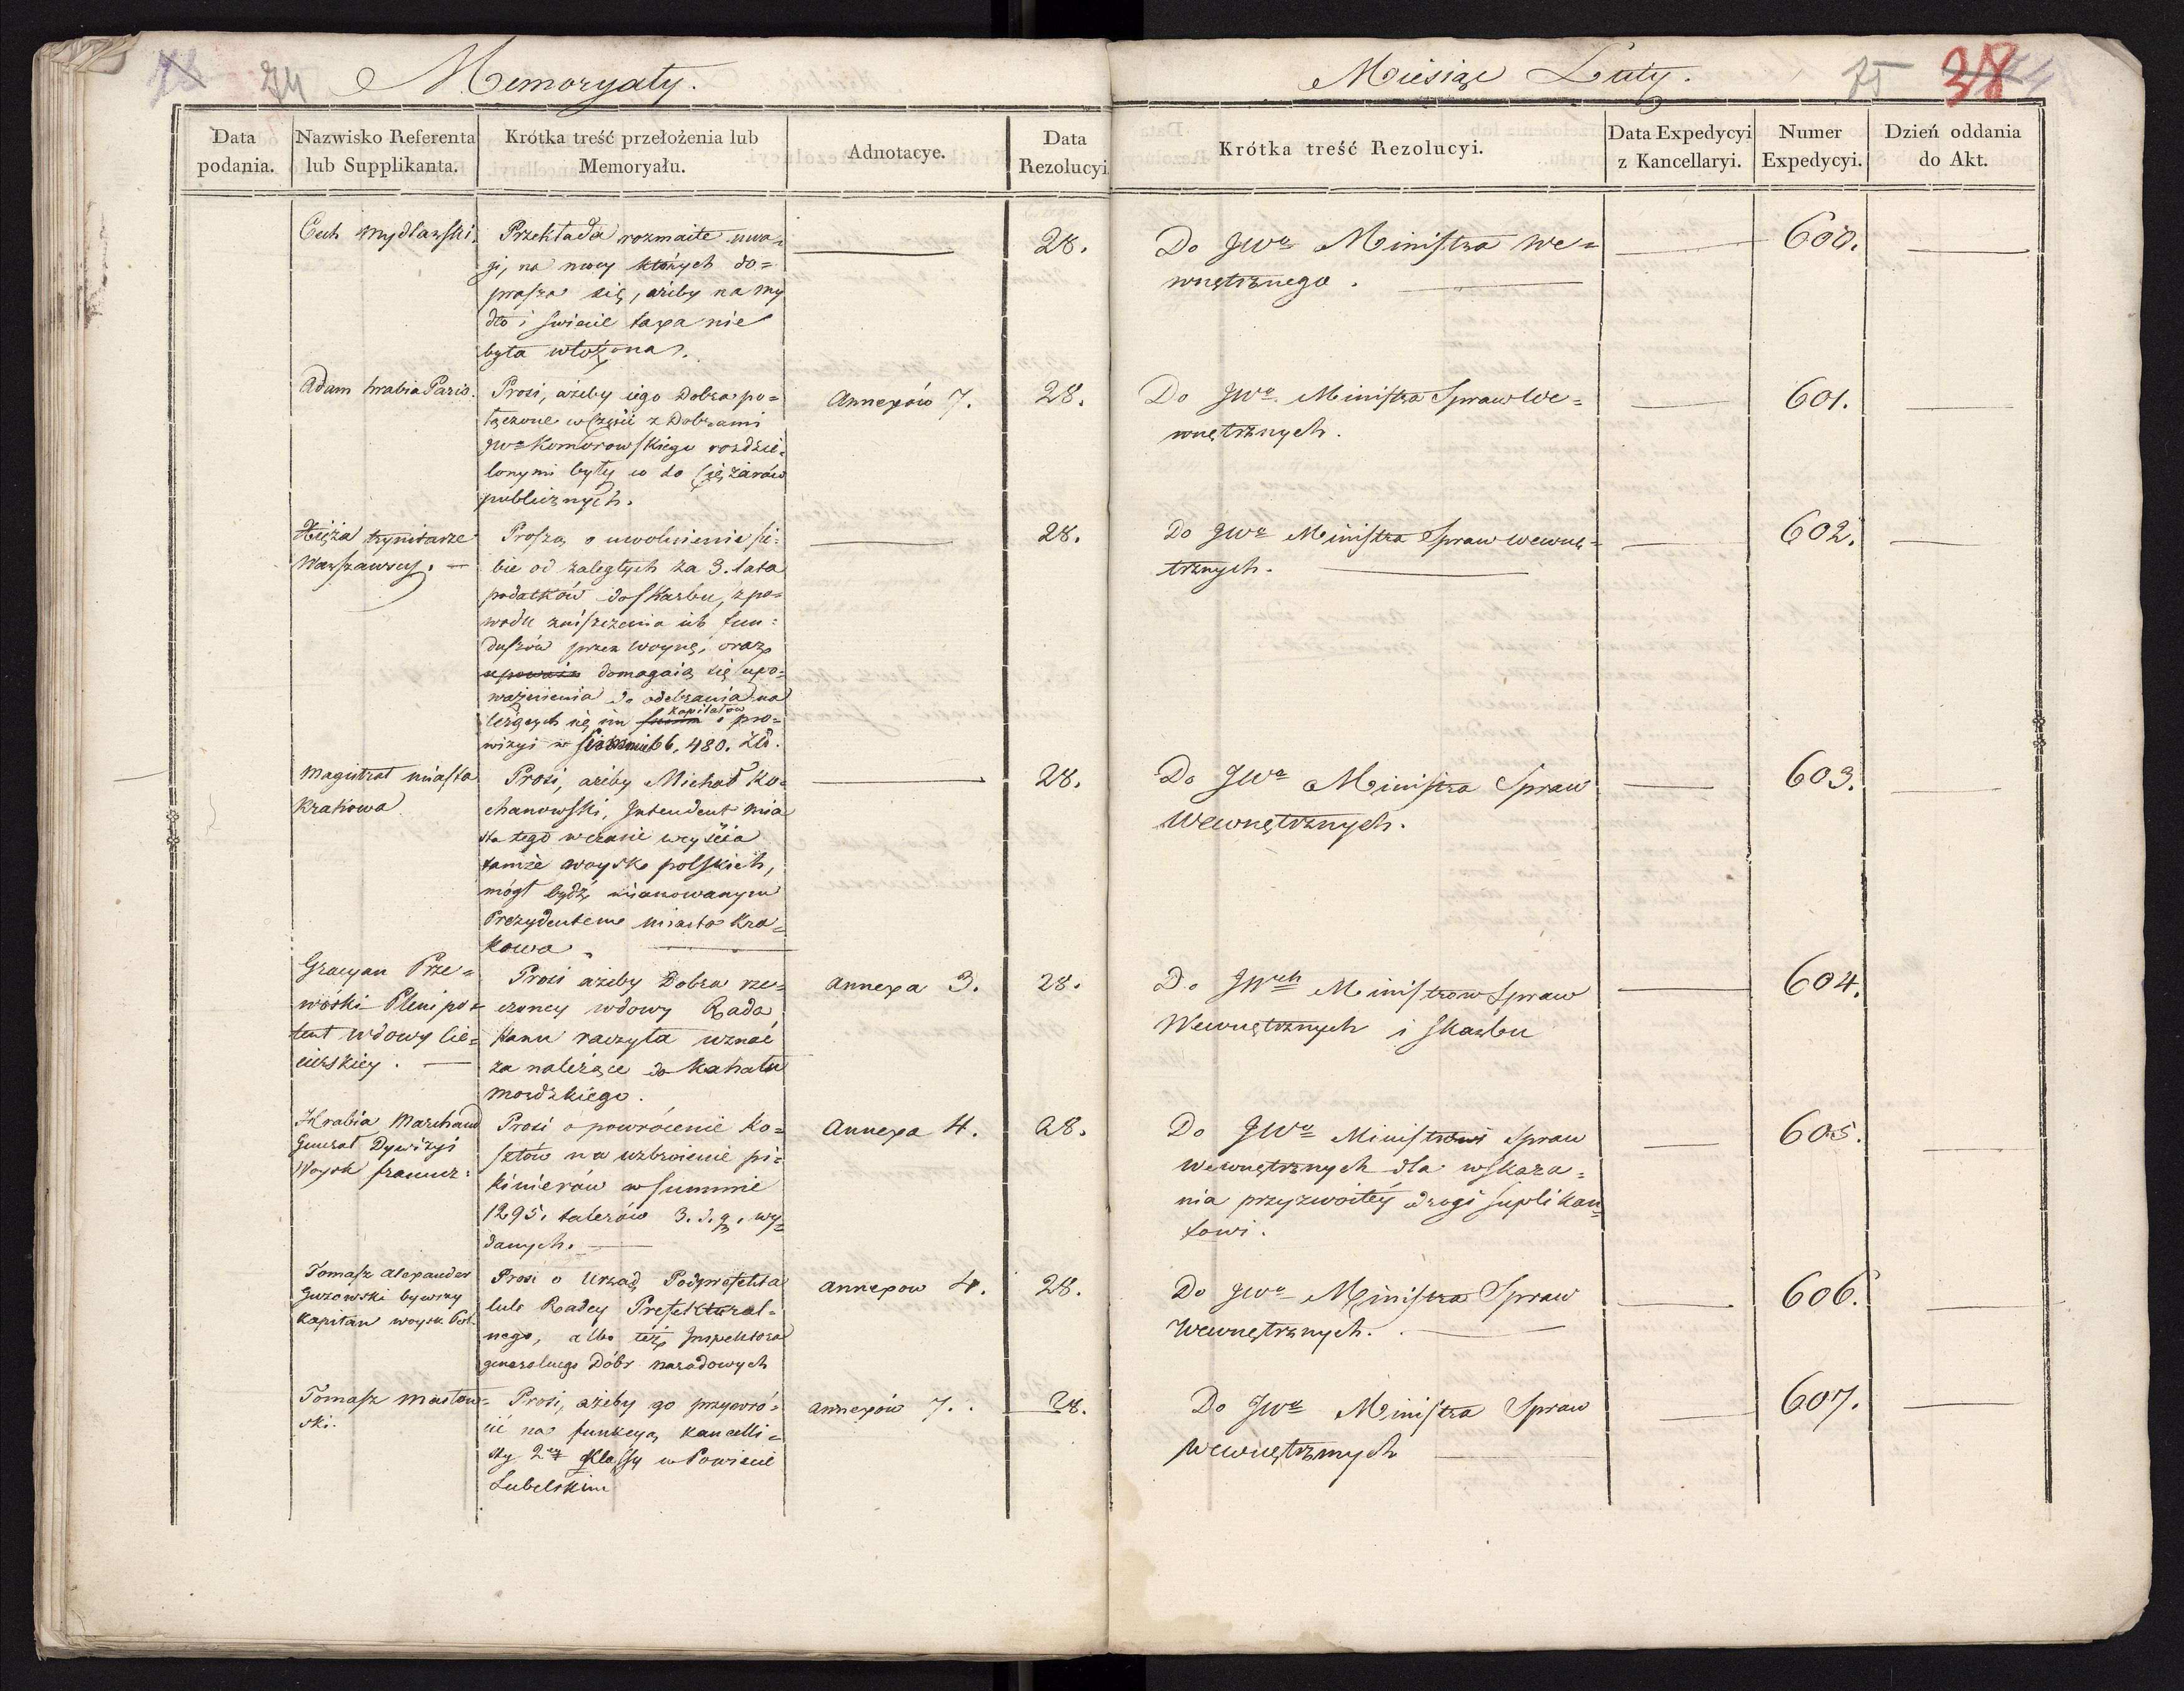 74
Memoryały.
Miesiąc Luty.
75
38
Data
podania.
Nazwisko Referenta
lub Supplikanta.
Krótka treść przełożenia lub
Memoryału.
Adnotacye.
Data
Rezolucyi
Krótka treść Rezolucyi.
Data Expedycyi
z Kancellaryi.
Numer
Expedycyi.
Dzień oddania
do Akt.
Cech Mydlarski.
Przekłada rozmaite uwa=
gi, na mocy których do=
prasza się, ażeby na my
dło i swiece taxa nie
była włożona.
28.
Do JWo Ministra We=
wnętrznego.
600.
Adam hrabia Paris.
Prosi, ażeby iego Dobra po=
łączone w części z Dobrami
JWo Komorowskiego rozdzie=
lonymi były co do Ciężarów
publicznych.
Annexów 7.
28.
Do JWo Ministra Spraw We=
wnętrznych.
601.
Xięża trynitarze
Warszawscy.
Proszą o uwolnienie sie=
bie od zaległych za 3. lata
podatków do Skarbu, z po=
wodu zniszczenia ich fun=
duszów przez Woynę, oraz
upoważn domagaią się upo=
ważnienia do odebrania na
leżących się im summ kapitałów i pro=
wizyi w Summie 66,480. Złł.
28.
Do JWo Ministra Spraw Wewnę=
trznych.
602.
Magistrat miasta
Krakowa
Prosi, ażeby Michał Ko=
chanowski, Intendent mia
sta tego w czasie weyścia
tamże woysk polskich,
mógł bydź mianowanym
Prezydentem miasta Kra=
kowa.
28.
Do JWo Ministra Spraw
Wewnętrznych.
603.
Gracyan Prze=
woski Plenipo=
tent wdowy Cie=
cierskiey.
Prosi ażeby Dobra rze=
czoney wdowy Rada
Stanu raczyła uznać
za należące do Kahału
mordzkiego.
Annexa 3.
28.
Do JWch Ministrów Spraw
Wewnętrznych i Skarbu
604.
Hrabia Marchand
Generał Dywizyi
Woysk francuz:
Prosi o powrócenie ko=
sztów na uzbroienie pi=
kinierów w summie
1295. talerów 3. d. g. wy=
danych.
Annexa 4.
28.
Do JWo Ministrowi Spraw
Wewnętrznych dla wskaza=
nia przyzwoitéy drogi suplikan=
towi.
605.
Tomasz Alexander
Guzowski bywszy
Kapitan woysk Pol.
Prosi o Urząd Podprefekta
lub Radcy Prefektural=
nego, albo też Inspektora
generalnego Dóbr narodowych
Annexow 4.
28.
Do JWo Ministra Spraw
Wewnętrznych.
606.
Tomasz Masłow=
ski.
Prosi, ażeby go przywró=
cić na funkcyą kancelli=
sty 2ey Klassy w Powiecie
Lubelskim
Annexów 7.
28.
Do JWo Ministra Spraw
Wewnętrznych
607.